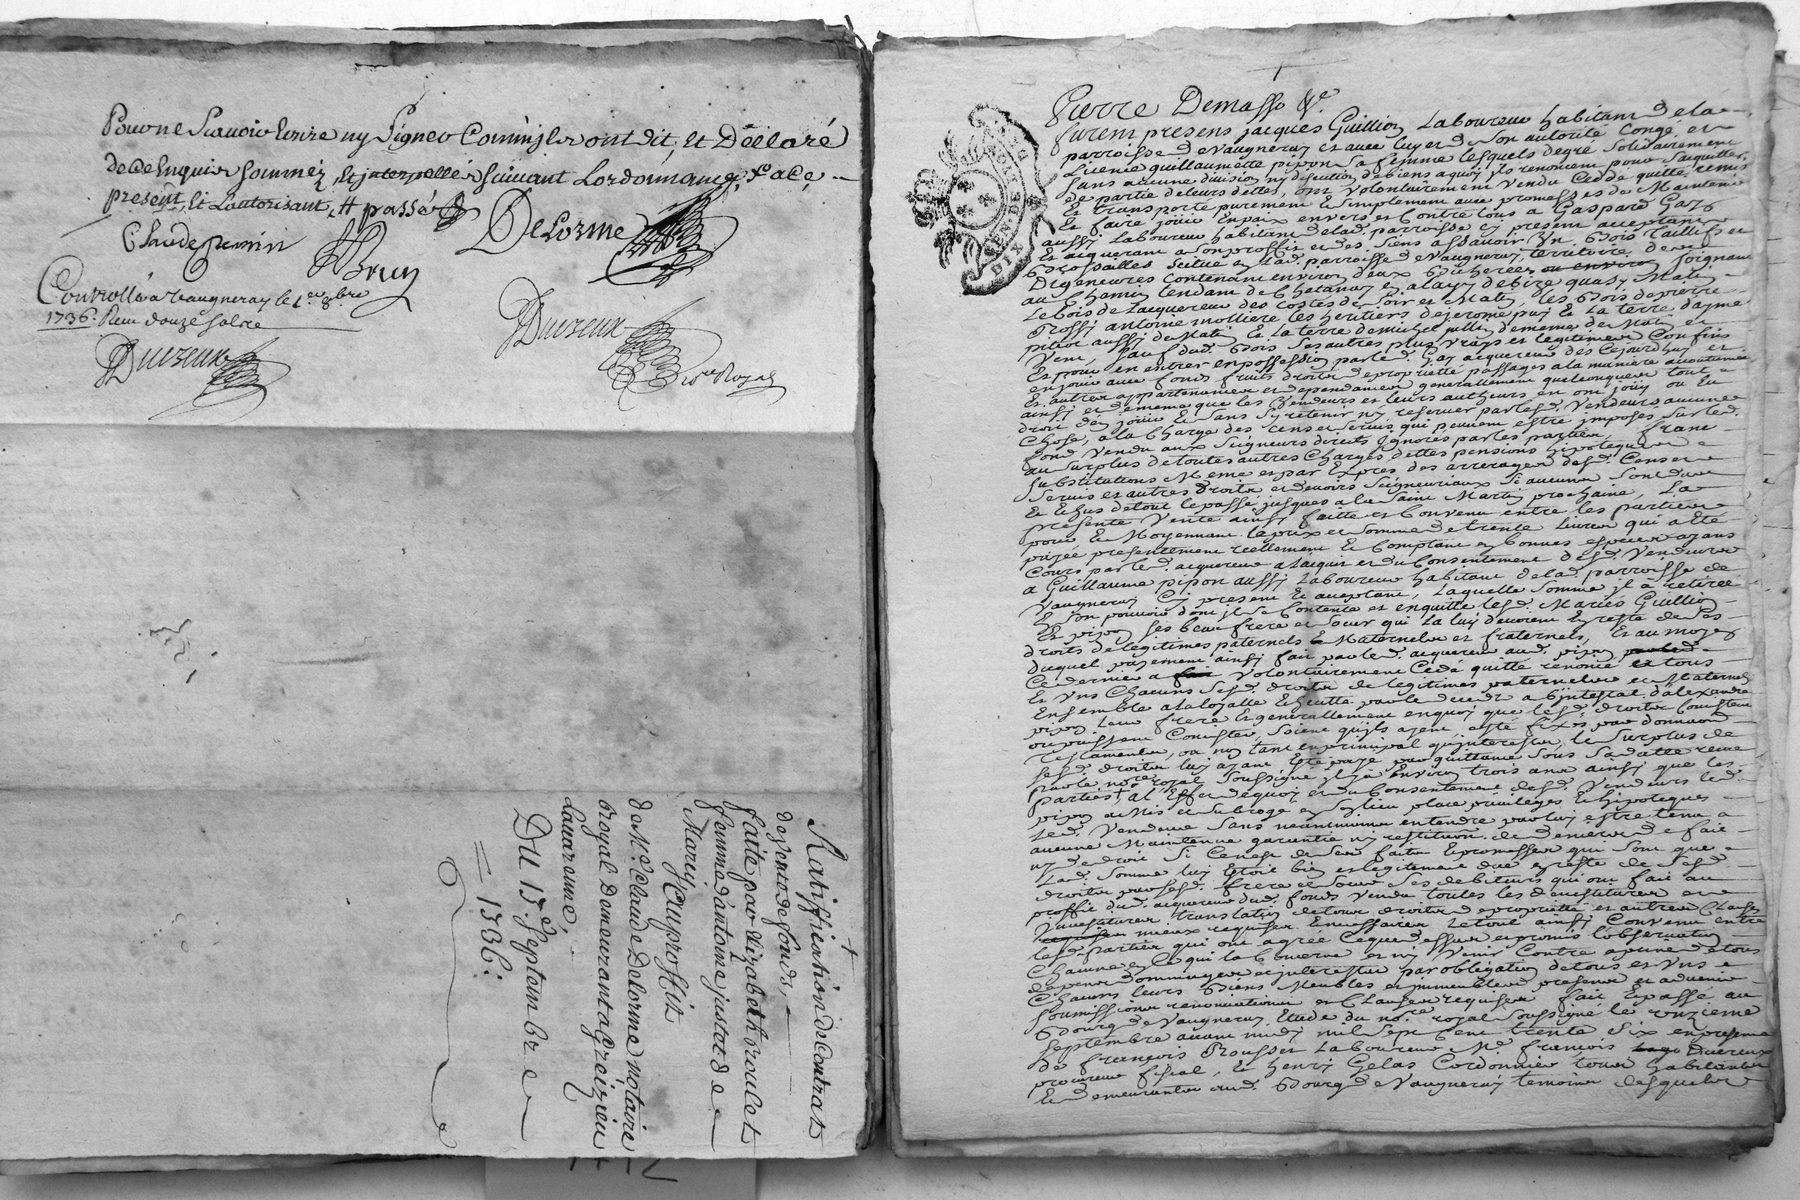 Pour ne Scavoir Ecrire ny Signer Comm'ils ont dit, et Déclaré
de ce Enquis sommez Et interpellés suivant Lordonnance,
present, Et Lautorisant, # passé
Claude
Bruy
DeLorme
Controllé a Vaugneray le 1er 8bre
1736. Receu douze sols
Duereux
Duereux
Nore Royal
Ratiffication de Contrat
de vente de fonds,
faite par elizabeth roulet
femme d'antoine justot de
Marcy
de Me. Claude Delorme notaire
Royal Demeurant a Greizieu
Lavarenne,
Du 15e. Septembre
= 1736:
Pierre Demasso &e
furent presens jacques Guillion Laboureur habitant de la
parroisse de Vaugneray et avec luy et de son autorité Congé et
Licence guillaumette pipon sa femme lesquels de gré solidairement
sans aucune division ny discution de biens a quoy ils renoncent pour s'acquitter
de partie de leurs dettes, ont volontairement vendu cedé quitté remis
Et transporté purement Et simplement avec promesses de Maintenir
Et faire jouir En paix envers et Contre tous a Gaspard Gay
aussy Laboureur habitant de lad. parroisse cy present acceptant
Et acquerant a son proffit et des siens assavoir Un Bois Taillif et
Brossailles scitué en lad. parroisse de Vaugneray, territoire de
Digeneures Contenant environ deux Bicherées joignant
au Chemin tendant de Chatanay a de bize quasy Matin
Le bois de Lacquereur des Costés de soir et Matin, les Bois de pierre
Brossy antoine molliere les heritiers de jerome puy Et La terre d'aymé
pitiot aussy de Mati Et la terre de michel jullien de memes de Mati et
Vent, sauf dud. Bois ses autres plus vrays et legitimes Confins
Et pour en entrer en possession par led. Gay acquereur des Cejourdhuy et
en jouir avec fonds fruits droits de propriété passages a la maniere accoutumée
Et autres appartenances et dependances generallement quelconques tout
ainsy et de meme que les Vendeurs et leurs autheurs en ont jouy ou Eu
droit d'en jouir Et sans sy retenir ny reserver par lesd. Vendeurs aucune
Chose, a la Charge des Cens et servis qui peuvent estre imposés sur led.
fond Vendu aux seigneurs directs ignorés par les parties, franc
au surplus de toutes autres Charges dettes pensions hipoteques
substitutions Meme et par Expres des arrerages desd. Cens et
servis et autres droits et devoirs seigneuriaux si aucuns sont dus
Et Echus de tout le passé jusques a la saint Martin prochaine, La
presente Vente ainsy faitte et Convenu entre les parties
pour Et Moyennant le prix et somme de trente Livres qui a été
payée presentement reellement Et Comptant en bonnes especes ayans
Cours par led. acquereur a l'acquit et du Consentement desd. Vendeurs
a Guillaume pipon aussy Laboureur habitant de lad. parroisse de
Vaugneray Cy present Et acceptant, Laquelle somme il a retirée
En son pouvoir dont il se Contente et en quitte lesd. Mariés Guillion
Et pipon ses beau frere et soeur qui la luy devoient En reste de ses
droits de legitimes paternels Et Maternels et fraternels, Et au moyen
duquel payement ainsy fait par led. acquereur aud. pipon
Ce dernier a volontairement Cedé quitté renoncé a tous
Et Uns Chacuns sesd. droits de legitimes paternels et Maternels
Ensemble a la loyalle Echutte par le deceds abintestat d'alexandre
pipon leur frere Et generallement en quoy que lesd. droits Consistent
ou puissent Consister, soient qu'ils ayent esté fixés par donnaon
Testaments, ou non tant en principal qu'interests, le surplus de
sesd. droits luy ayant esté payé par quittance sous sa datte receue
par le nore royal soussigné il y a Environ trois ans ainsy que les
parties, a l'Effet de quoy et du Consentement desd. Vendeurs led.
pipon a Mis et subrogé en son lieu place privileges Et hipoteques
led. Vendeur sans neantmoins entendre par luy estre tenu a
aucune Maintenue garantie ny restitution de deniers de fait
ny de droit si Ce n'est de ses faits Et promesses qui sont que
Lad. somme luy Etoit bien et legitimement due en reste de sesd.
droits par sesd. frere et soeur ses debiteurs qui ont fait au
proffit dud. acquereur dud. fonds Vendu toutes les devestitures et
investitures translation de tous droits de propriété et autres Clauses
mieux requises Et necessaires Le tout ainsy Convenu entre
lesd. parties qui ont agreé Ce que dessus et promis l'observation
Chacune en Ce qui la Concerne et n'y Venir Contre a peine de tous
depens dommages et interests par obligation de tous et Uns
Chacuns leurs Biens Meubles et immeubles presens et advenir
soumissions renonciations et Clauses requises fait Et passé au
Bourg de Vaugneray Etude du nore. royal soussigné le onzieme
septembre avant midy mil sept Cent trente six en presence
de françois Rousset Laboureur Me. françois Duereux
procureur fiscal, Et henry Gelas Cordonnier tous habitants
Et demeurants aud. Bourg de Vaugneray temoins desquels
GEN. DE LYON
DIX DEN